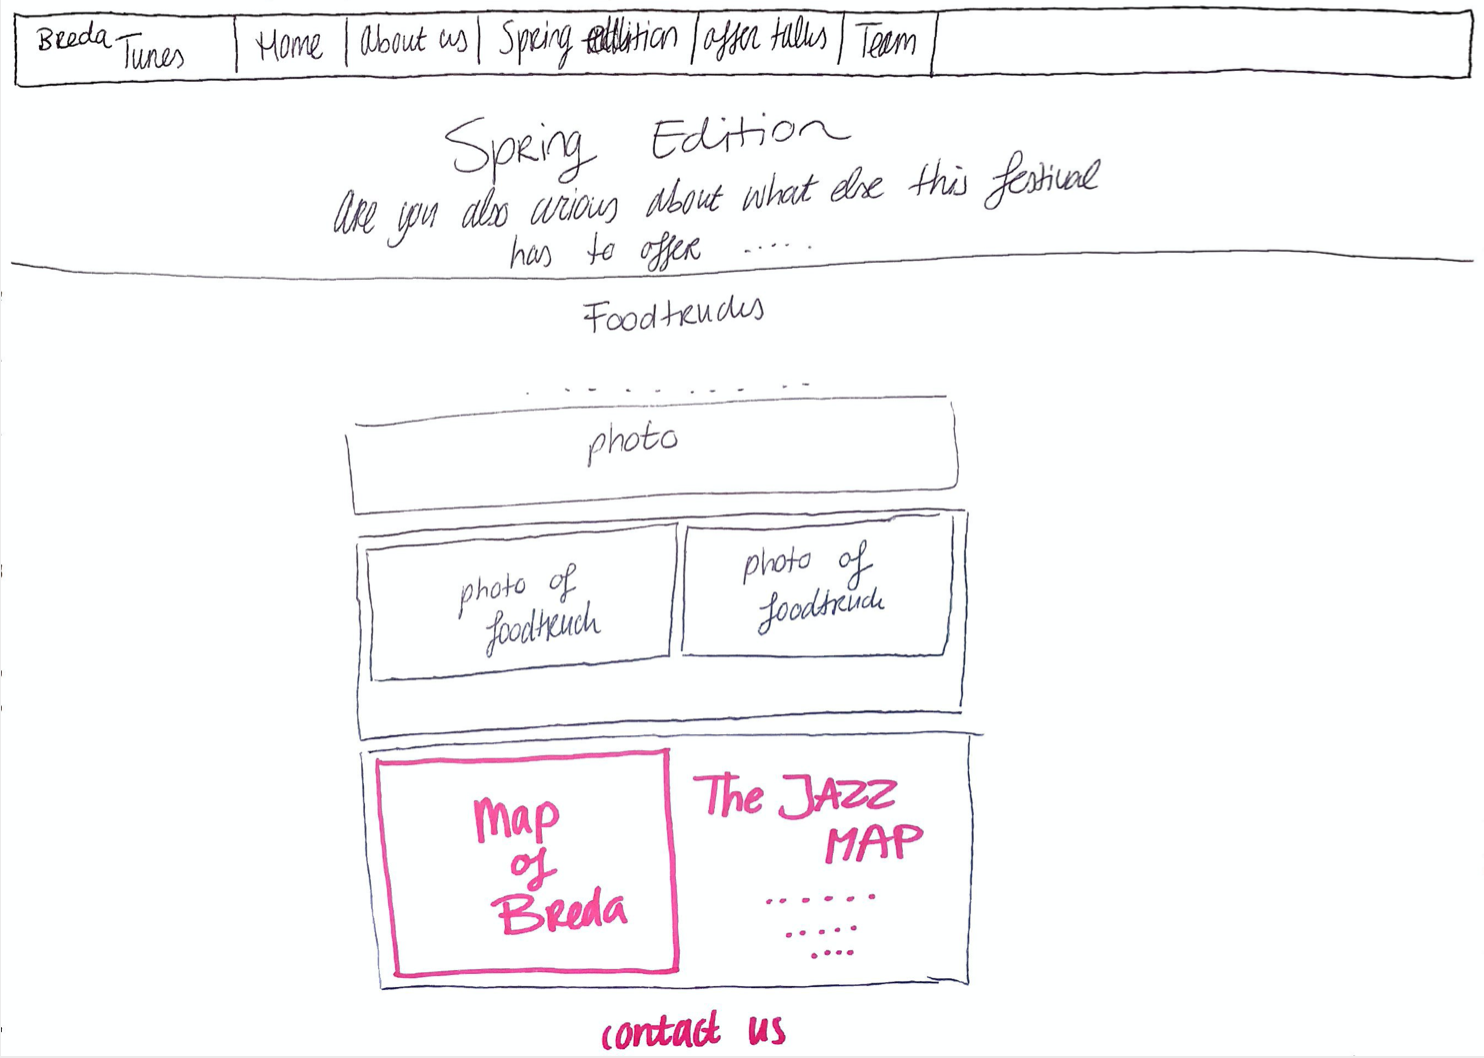 Breda Tunes | Home | About us | Spring edition | offer talks | Team
Spring Edition
Are you also curious about what else this festival
has to offer .....
Foodtrucks
photo
photo of
foodtruck
photo of
foodtruck
Map
of
Breda
The JAZZ
MAP
contact us